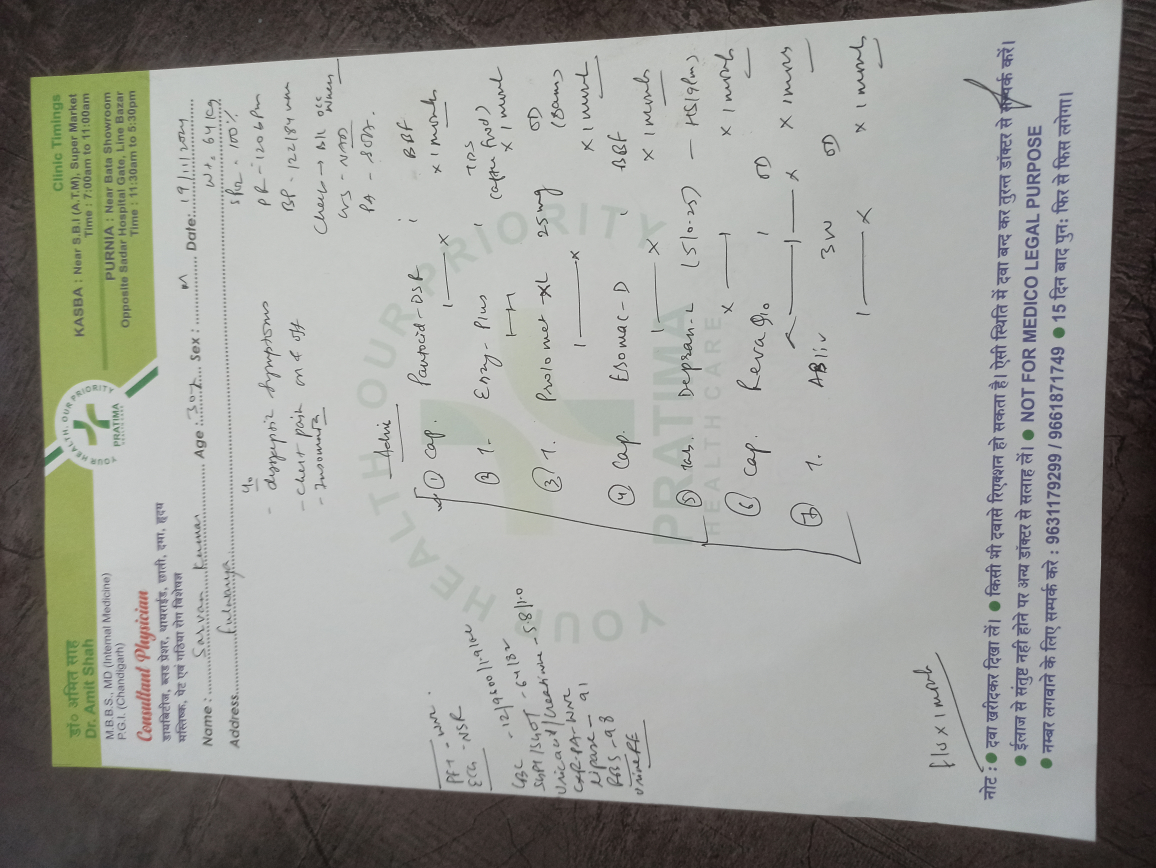 डॉ० अमित साह
Dr. Amit Shah
M.B.B.S., MD (Internal Medicine)
P.G.I. (Chandigarh)
Consultant Physician
डायबिटीज, ब्लड प्रेशर, थायराईड, छाती, दमा, हृदय
मस्तिष्क, पेट एवं गठिया रोग विशेषज्ञ
YOUR HEALTH, OUR PRIORITY
PRATIMA
Clinic Timings
KASBA : Near S.B.I (A.T.M), Super Market
Time : 7:00am to 11:00am
PURNIA : Near Bata Showroom
Opposite Sadar Hospital Gate, Line Bazar
Time : 11:30am to 5:30pm
Name : Sarvan Kumar Age : 30y Sex : M Date: 19/1/2024
Address
Wt. 64 kg
SpO2 = 100%
PR - 120 bpm
BP = 122/84 mm
Chest → B/L
CVS - NAD
PA - soft
c/o
- dyspeptic symptoms
- chest pain on & off
- Insomnia
Advice
① Cap. Pantocid-DSR 1 BBF x 1 month
② T. Enzy-Plus 1 TDS (after food) x 1 month
③ T. Prolomet-XL 25 mg OD (8am) x 1 month
④ Cap. Esomac-D 1 BBF x 1 month
⑤ Tab. Depran-L (5/0.25) - HS (9pm) x 1 month
⑥ Cap. 1 OD x 1 month
⑦ T. ABliv OD x 1 month
PFT - WNL
ECG - NSR
CBC
SGPT/SGOT - 64/32
Uric acid/Creatinine - 5.8/1.0
CXR-PA-WNL
Lipase - 91
RBS - 98
Urine RE
F/U x 1 month
YOUR HEALTH OUR PRIORITY
PRATIMA
HEALTH CARE
नोट : ● दवा खरीदकर दिखा लें। ● किसी भी दवासे रिएक्शन हो सकता है। ऐसी स्थिति में दवा बन्द कर तुरन्त डॉक्टर से सम्पर्क करें।
● ईलाज से संतुष्ट नही होने पर अन्य डॉक्टर से सलाह लें। ● NOT FOR MEDICO LEGAL PURPOSE
● नम्बर लगवाने के लिए सम्पर्क करे : 9631179299 / 9661871749 ● 15 दिन बाद पुन: फिर से फिस लगेगा।